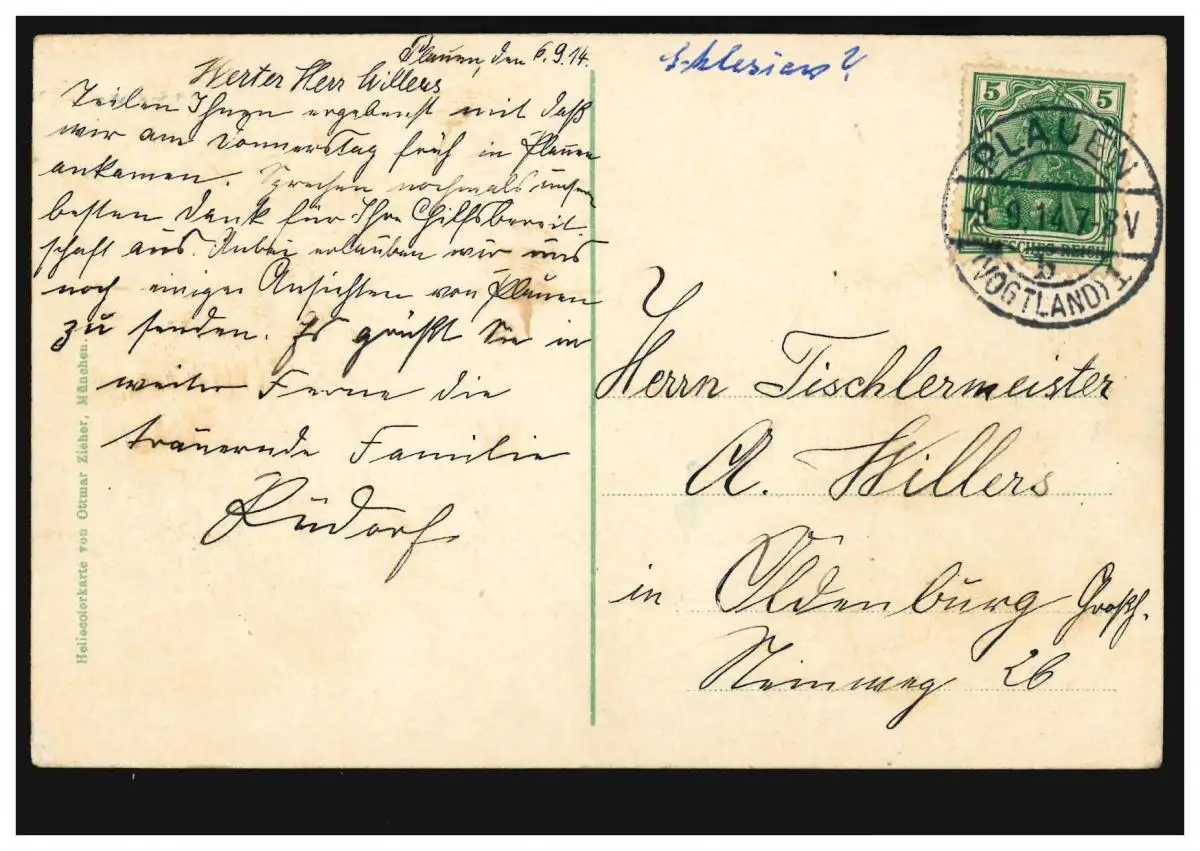 Plauen, den 6.9.14.
Werter Herr Willers
Teilen Ihnen ergebenst mit daß
wir am Donnerstag früh in Plauen
ankamen. Sprechen nochmals unsern
besten Dank für Ihre Hilfsbereit-
schaft aus. Anbei erlauben wir uns
noch einige Ansichten von Plauen
zu senden. Es grüßt Sie in
weiter Ferne die
trauernde Familie
Rüdorf
Heliocolorkarte von Ottmar Zieher, München.
Schlesien?
5 5
PLAUEN
-9.9.14.7-8V
b
(VOGTLAND) 1
Herrn Tischlermeister
A. Willers
in Oldenburg Großh.
26